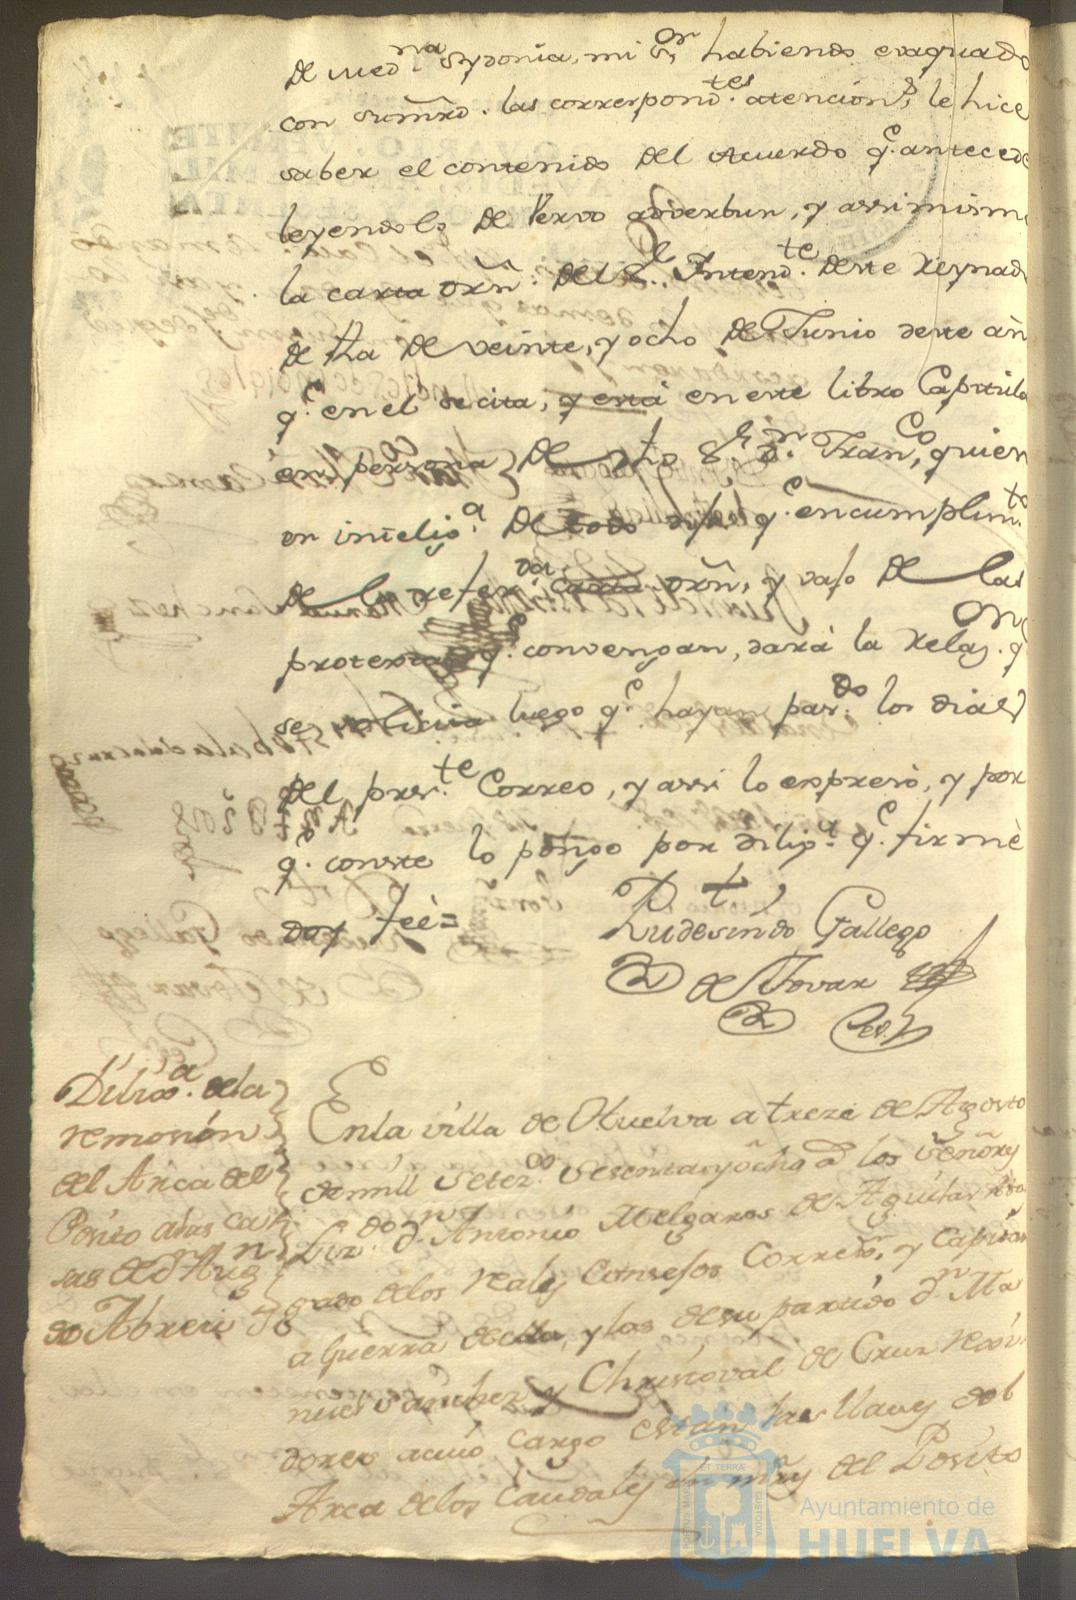 de Med.na Sydonia, mi S.or habiendo evaquado
con su mrd. las correspond.tes atencion.s le hice
saber el contenido del Acuerdo q.e antecede
leyendolo de Vervo adverbun, y assimism
la carta orñ. del S.r Intend.te deste Reynad
de fha de veinte, y ocho de Junio deste añ
q.e en el se cita, y está en este libro Capitula
en persona de dho S.r d.n Fran.co quien
en intelig.a de todo dijo q.e en cumplim.to
de la refer.da carta orñ, y vajo de las
protextas q.e convengan, dará la relaz.on q
se solicita luego q.e hayan pas.do los dias
del pres.te Correo, y assi lo expresó, y por
q.e conste lo pongo por dilig.a q.e firmè
doy feè=
Rudesindo Gallego
de Tovar
Es.no
Dilig.a de la
remosion
del Arca del
Posito a las ca
sas de d.n Aug.n
de Abreu 38
En la villa de Huelva a treze de Agosto
de mill setez.os sesenta y ocho a.s los señores
Liz.do d.n Antonio Melgarejo de Aguilar Abo
gado de los reales Consejos Correx.or, y Capitan
a Guerra de ella, y las de su partido d.n Ma
nuel Sanchez y Christoval de Cruz rexi
dores a cuio cargo estan las llaves del
Arca de los Caudales en mrs del Posito
Ayuntamiento de
HUELVA